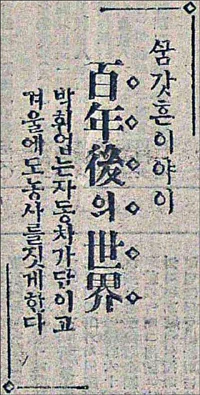 꿈갓흔이야이
百年後의世界
박휘업는자동차가단이고
겨울에도농사를짓게한다